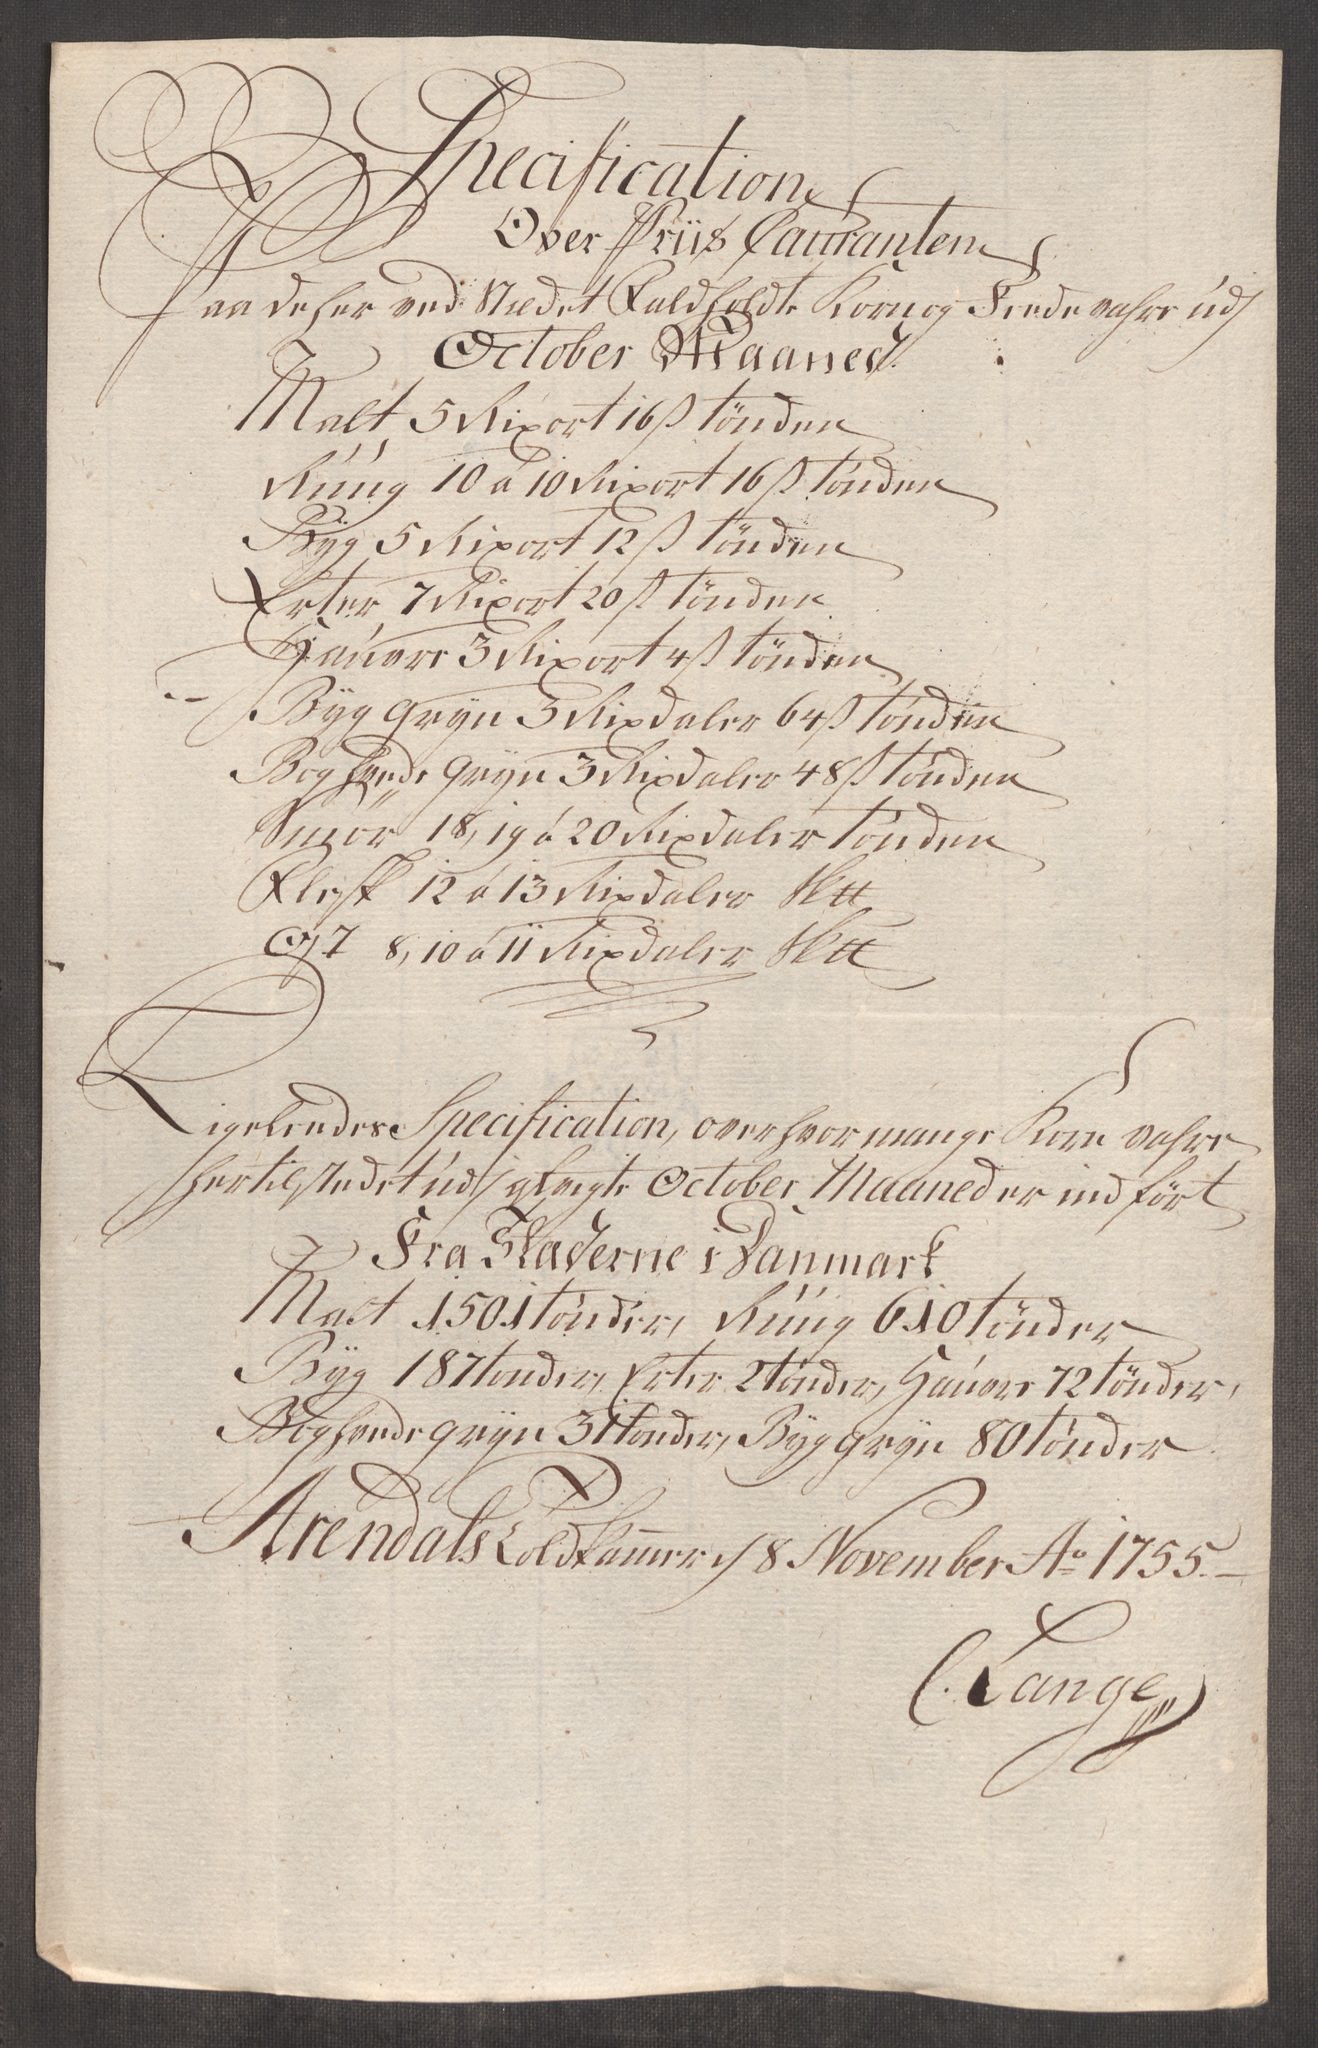 Specification
Over Priis Couranten
Paa de her ved Stædet Faldholdte Korn og Fede vahre udj
October Maaned.
Malt 5 Rixort 16 ß tønden
Rúúg 10 a 10 Rixort 16 ß tønden
Bÿg 5 Rixort 12 ß tønden
Erter 7 Rixort 20 ß tønden
Hauvre 3 Rixort 4 ß tønden
Bÿg grÿn 3 Rixdaler 64 ß tønden
Boghvede grÿn 3 Rixdaler 48 ß tønden
Smør 18, 19 a 20 Rixdaler tønden
Flesk 12 a 13 Rixdaler
Ost 8, 10 a 11 Rixdaler
Ligeledes Specification, over hvor mange Korn vahre
her til stedet udj October Maaned er ind ført
Fra Stæderne i Danmark
Malt 1501 tønder, Rúúg 610 tønder
Bÿg 187 tønder, Erter 2 tønder, Hauvre 72 tønder,
Boghvede grÿn 31 tønder, Bÿg grÿn 80 tønder
Arendals Toldkammer d 8 November Ao 1755.
C. Lange